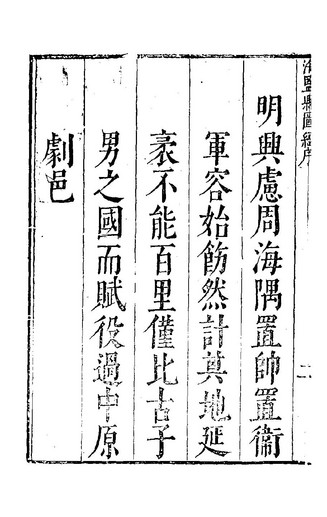 海鹽縣圖經序
二
明興慮周海隅置帥置衞
軍容始飭然計其地延
袤不能百里僅比古子
男之國而賦役過中原
劇邑